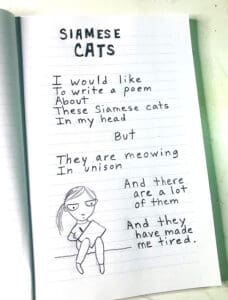 SIAMESE
CATS
I would like
To write a poem
About
These Siamese cats
In my head
But
They are meowing
In unison
And there
are a lot
of them
And they
have made
me tired.